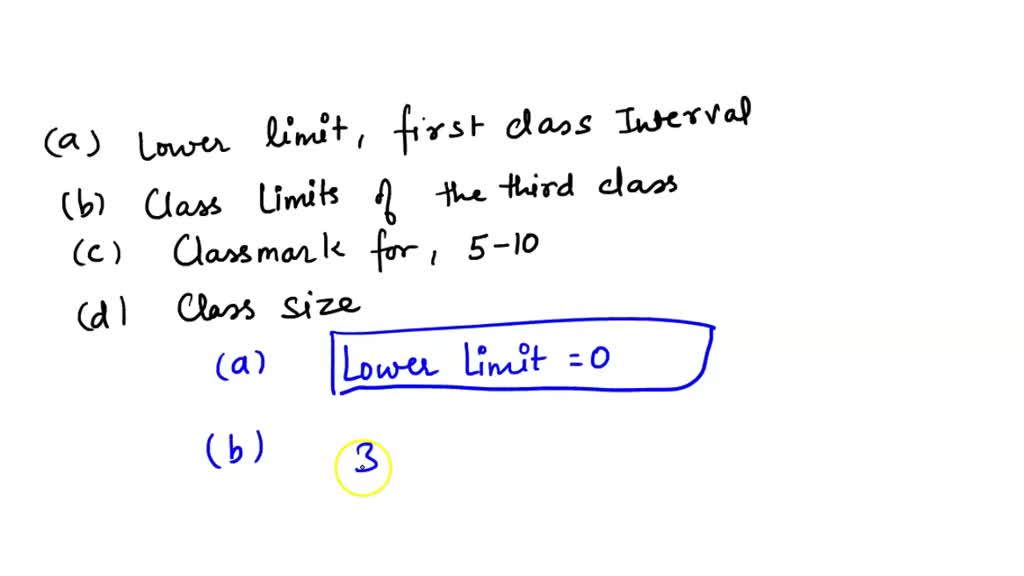 (a) Lower limit, first class Interval
(b) Class Limits of the third class
(c) Classmark for, 5-10
(d) Class size
(a) Lower Limit = 0
(b) 3